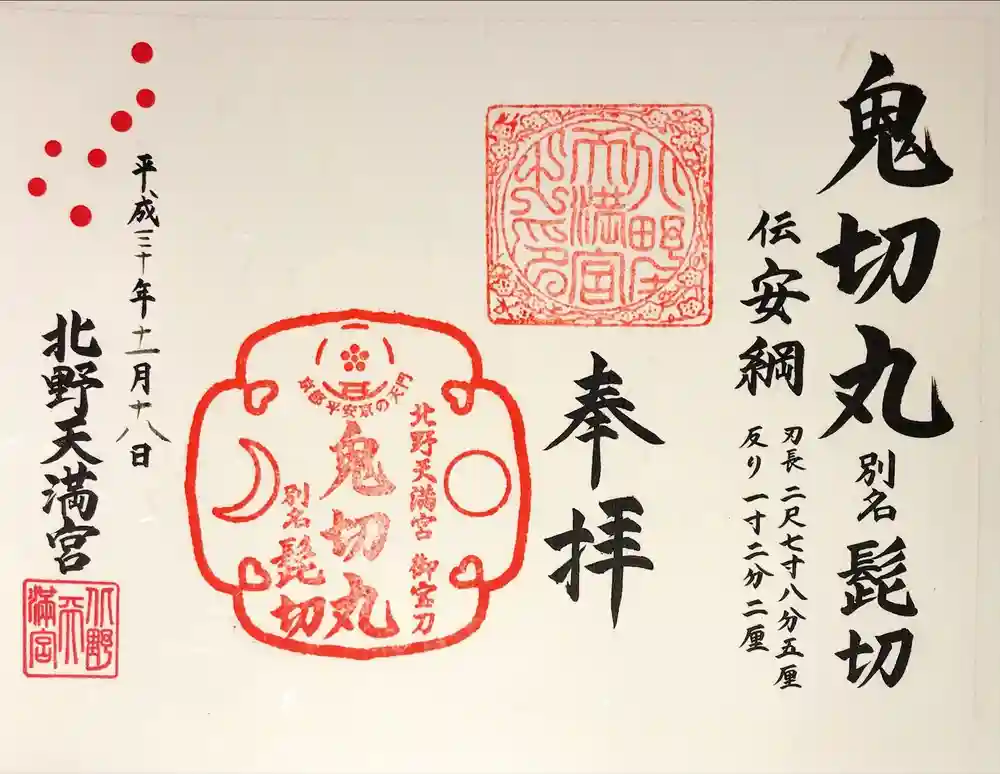 鬼切丸 別名 髭切
伝 安綱
刃長 二尺七寸八分五厘
反り 一寸二分二厘
奉拝
北野天満宮
京都平安京の天門
北野天満宮 御宝刀
鬼切丸
別名 髭切
平成三十年十一月十八日
北野天満宮
北野天満宮